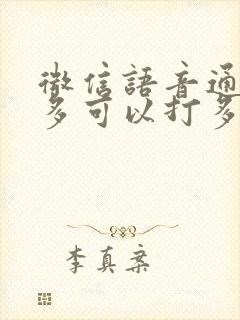 微信語音通
多可以打多
李真案